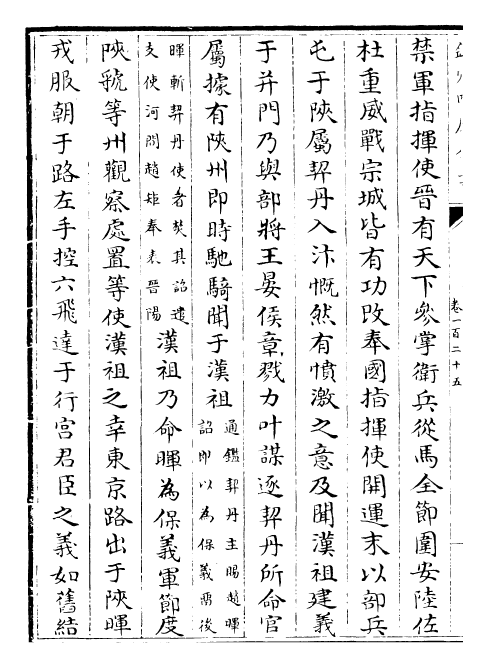 卷一百二十五
禁軍指揮使晉有天下參掌衛兵從馬全節圍安陸佐
杜重威戰宗城皆有功改奉國指揮使開運末以部兵
屯于陜屬契丹入汴慨然有憤激之意及聞漢祖建義
于并門乃與部將王晏侯章戮力叶謀逐契丹所命官
屬據有陜州即時馳騎聞于漢祖
通鑑契丹主賜趙暉
詔即以為保義留後
暉斬契丹使者焚其詔遣
支使河間趙矩奉表晉陽
漢祖乃命暉為保義軍節度
陜虢等州觀察處置等使漢祖之幸東京路出于陜暉
戎服朝于路左手控六飛達于行宮君臣之義如舊結